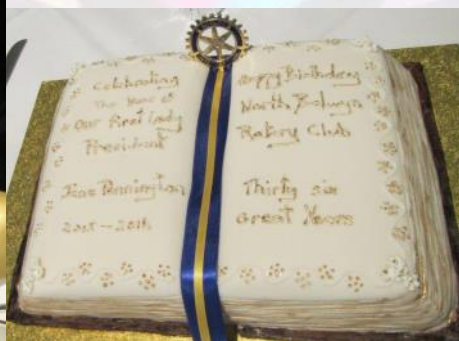 Celebrating
The Year of
Our First Lady
President
Jane Pennington
Happy Birthday
North Balwyn
Rotary Club
Thirty six
Great Years